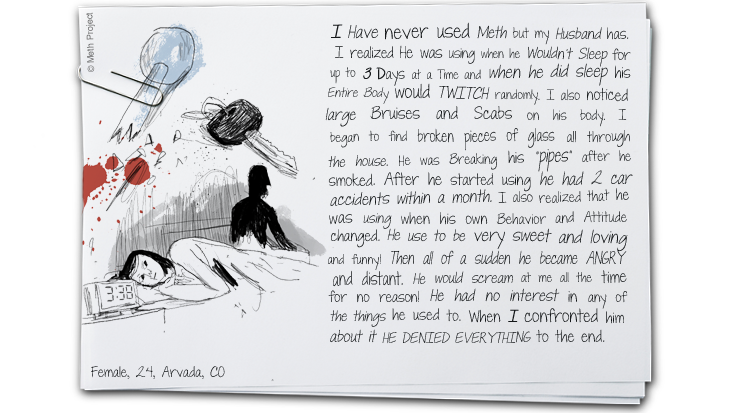 © Meth Project
I Have never used Meth but my Husband has.
I realized He was using when he Wouldn't Sleep for
up to 3 Days at a Time and when he did sleep his
Entire Body would TWITCH randomly. I also noticed
large Bruises and Scabs on his body. I
began to find broken pieces of glass all through
the house. He was Breaking his "pipes" after he
smoked. After he started using he had 2 car
accidents within a month. I also realized that he
was using when his own Behavior and Attitude
changed. He use to be very sweet and loving
and funny! Then all of a sudden he became ANGRY
and distant. He would scream at me all the time
for no reason! He had no interest in any of
the things he used to. When I confronted him
about it HE DENIED EVERYTHING to the end.
3:38
Female, 24, Arvada, CO